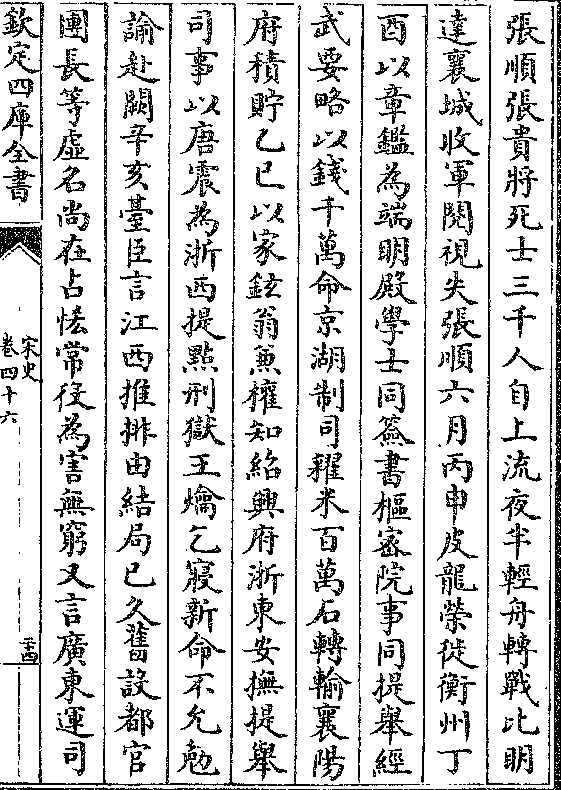 張順張貴將死士三千人自上流夜半輕舟轉戰比明
達襄城收軍閱視失張順六月丙申皮龍榮徙衡州丁
酉以章鑑為端明殿學士同簽書樞密院事同提舉經
武要略以錢千萬命京湖制司糴米百萬石轉輸襄陽
府積貯乙巳以家鉉翁兼權知紹興府浙東安撫提舉
司事以唐震為浙西提點刑獄王爚乞寢新命不允勉
諭赴闕辛亥臺臣言江西推排由結局已久舊設都官
團長等虛名尚在占恡常役為害無窮又言廣東運司
欽定四庫全書
宋史
卷四十六
二十四